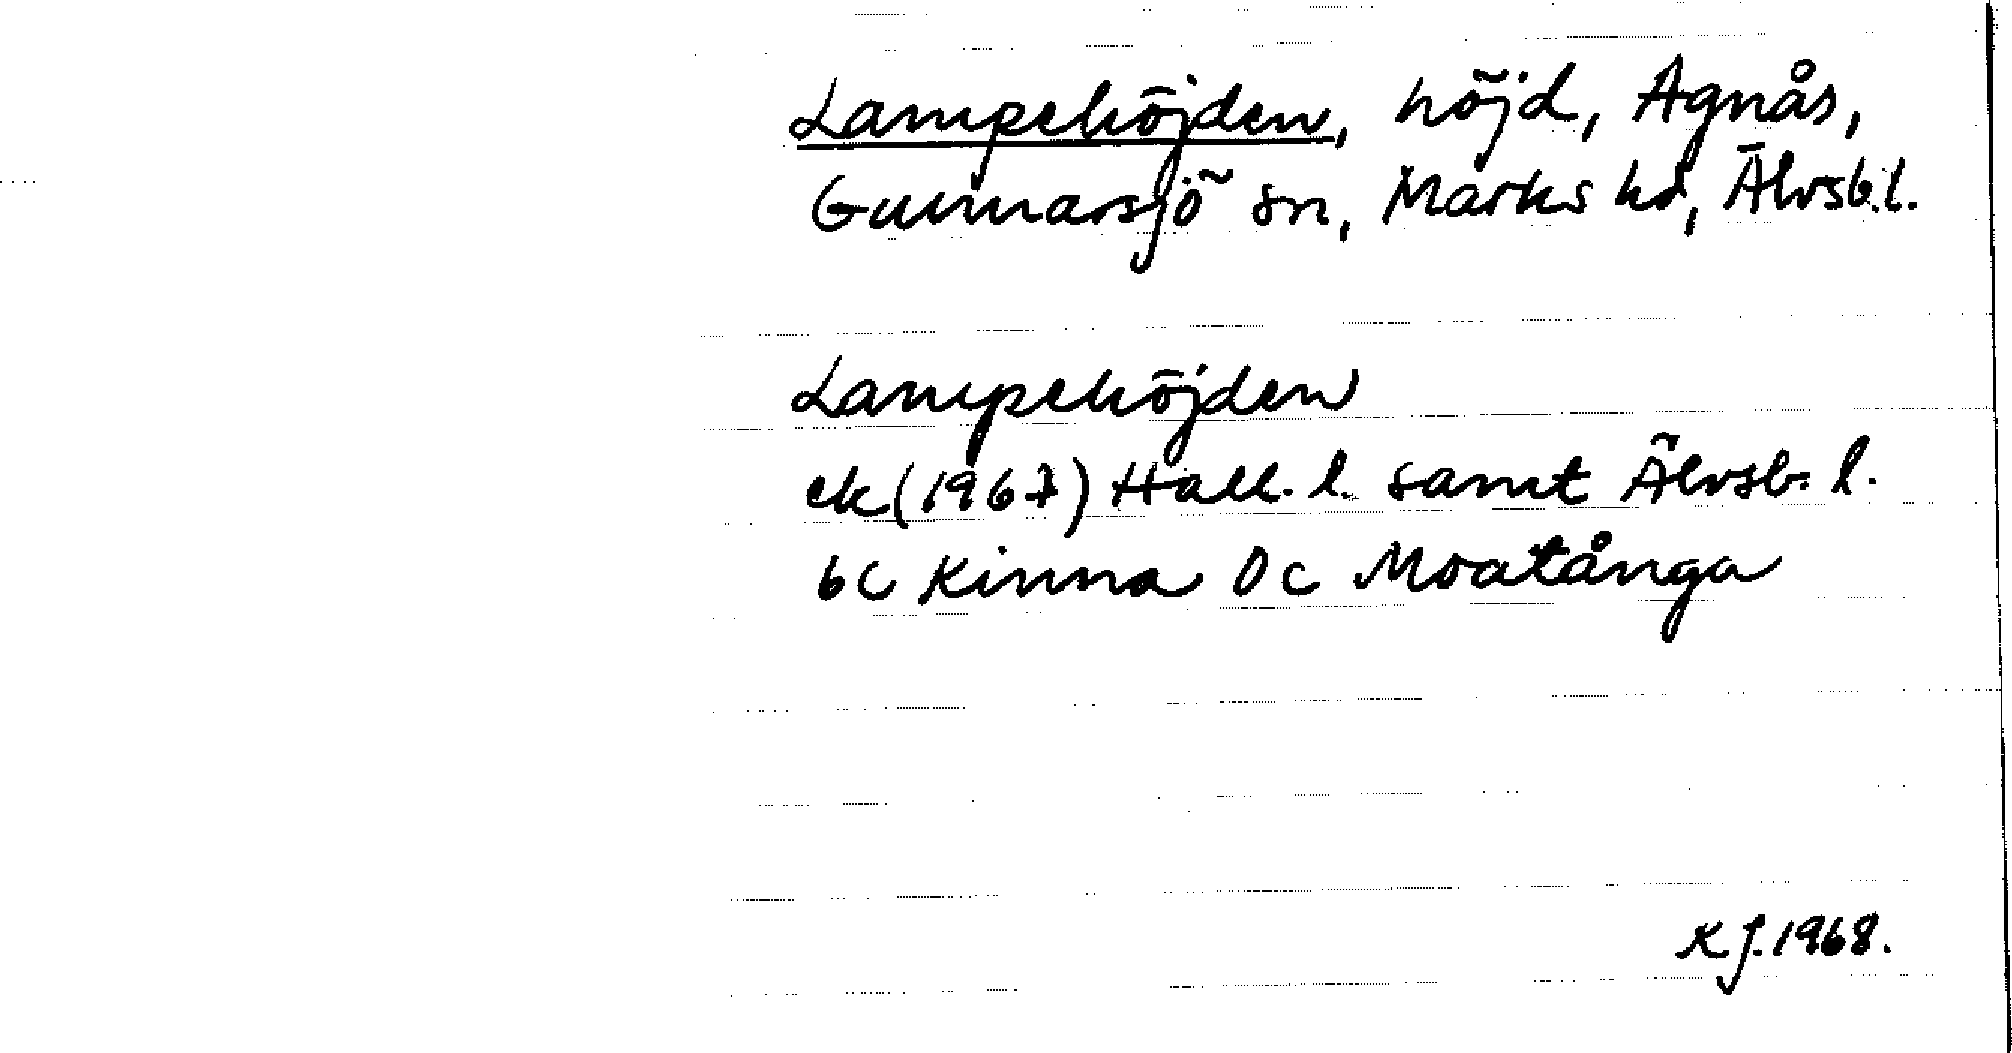 Lampehöjden, höjd, Agnås,
Gunnarsjö sn, Marks hd, Älvsb.l.
Lampehöjden
ek (1967) Hall. l. samt Älvsb. l.
6c Kinna 0c Moatånga
KJ. 1968.